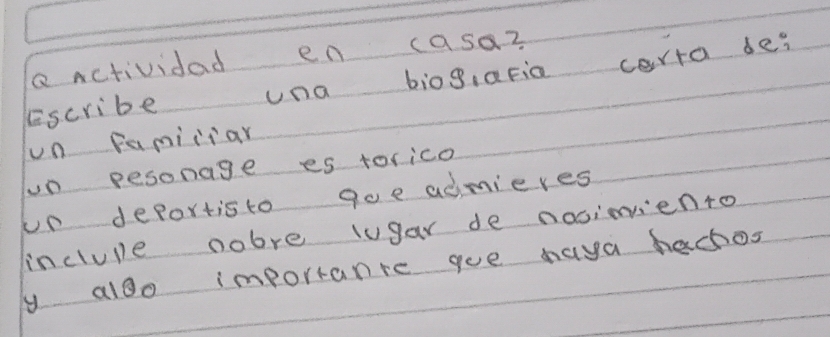 a Actividad en casa?
Escribe una biografia corta de:
un familiar
un pesonage es torico
un deportisto que admieres
incluye nobre lugar de nasimiento
y algo importante que haya hechos